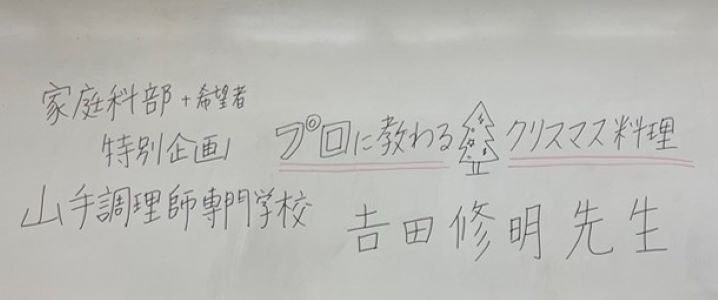 家庭科部+希望者
特別企画 プロに教わるクリスマス料理
山手調理師専門学校 吉田修明先生